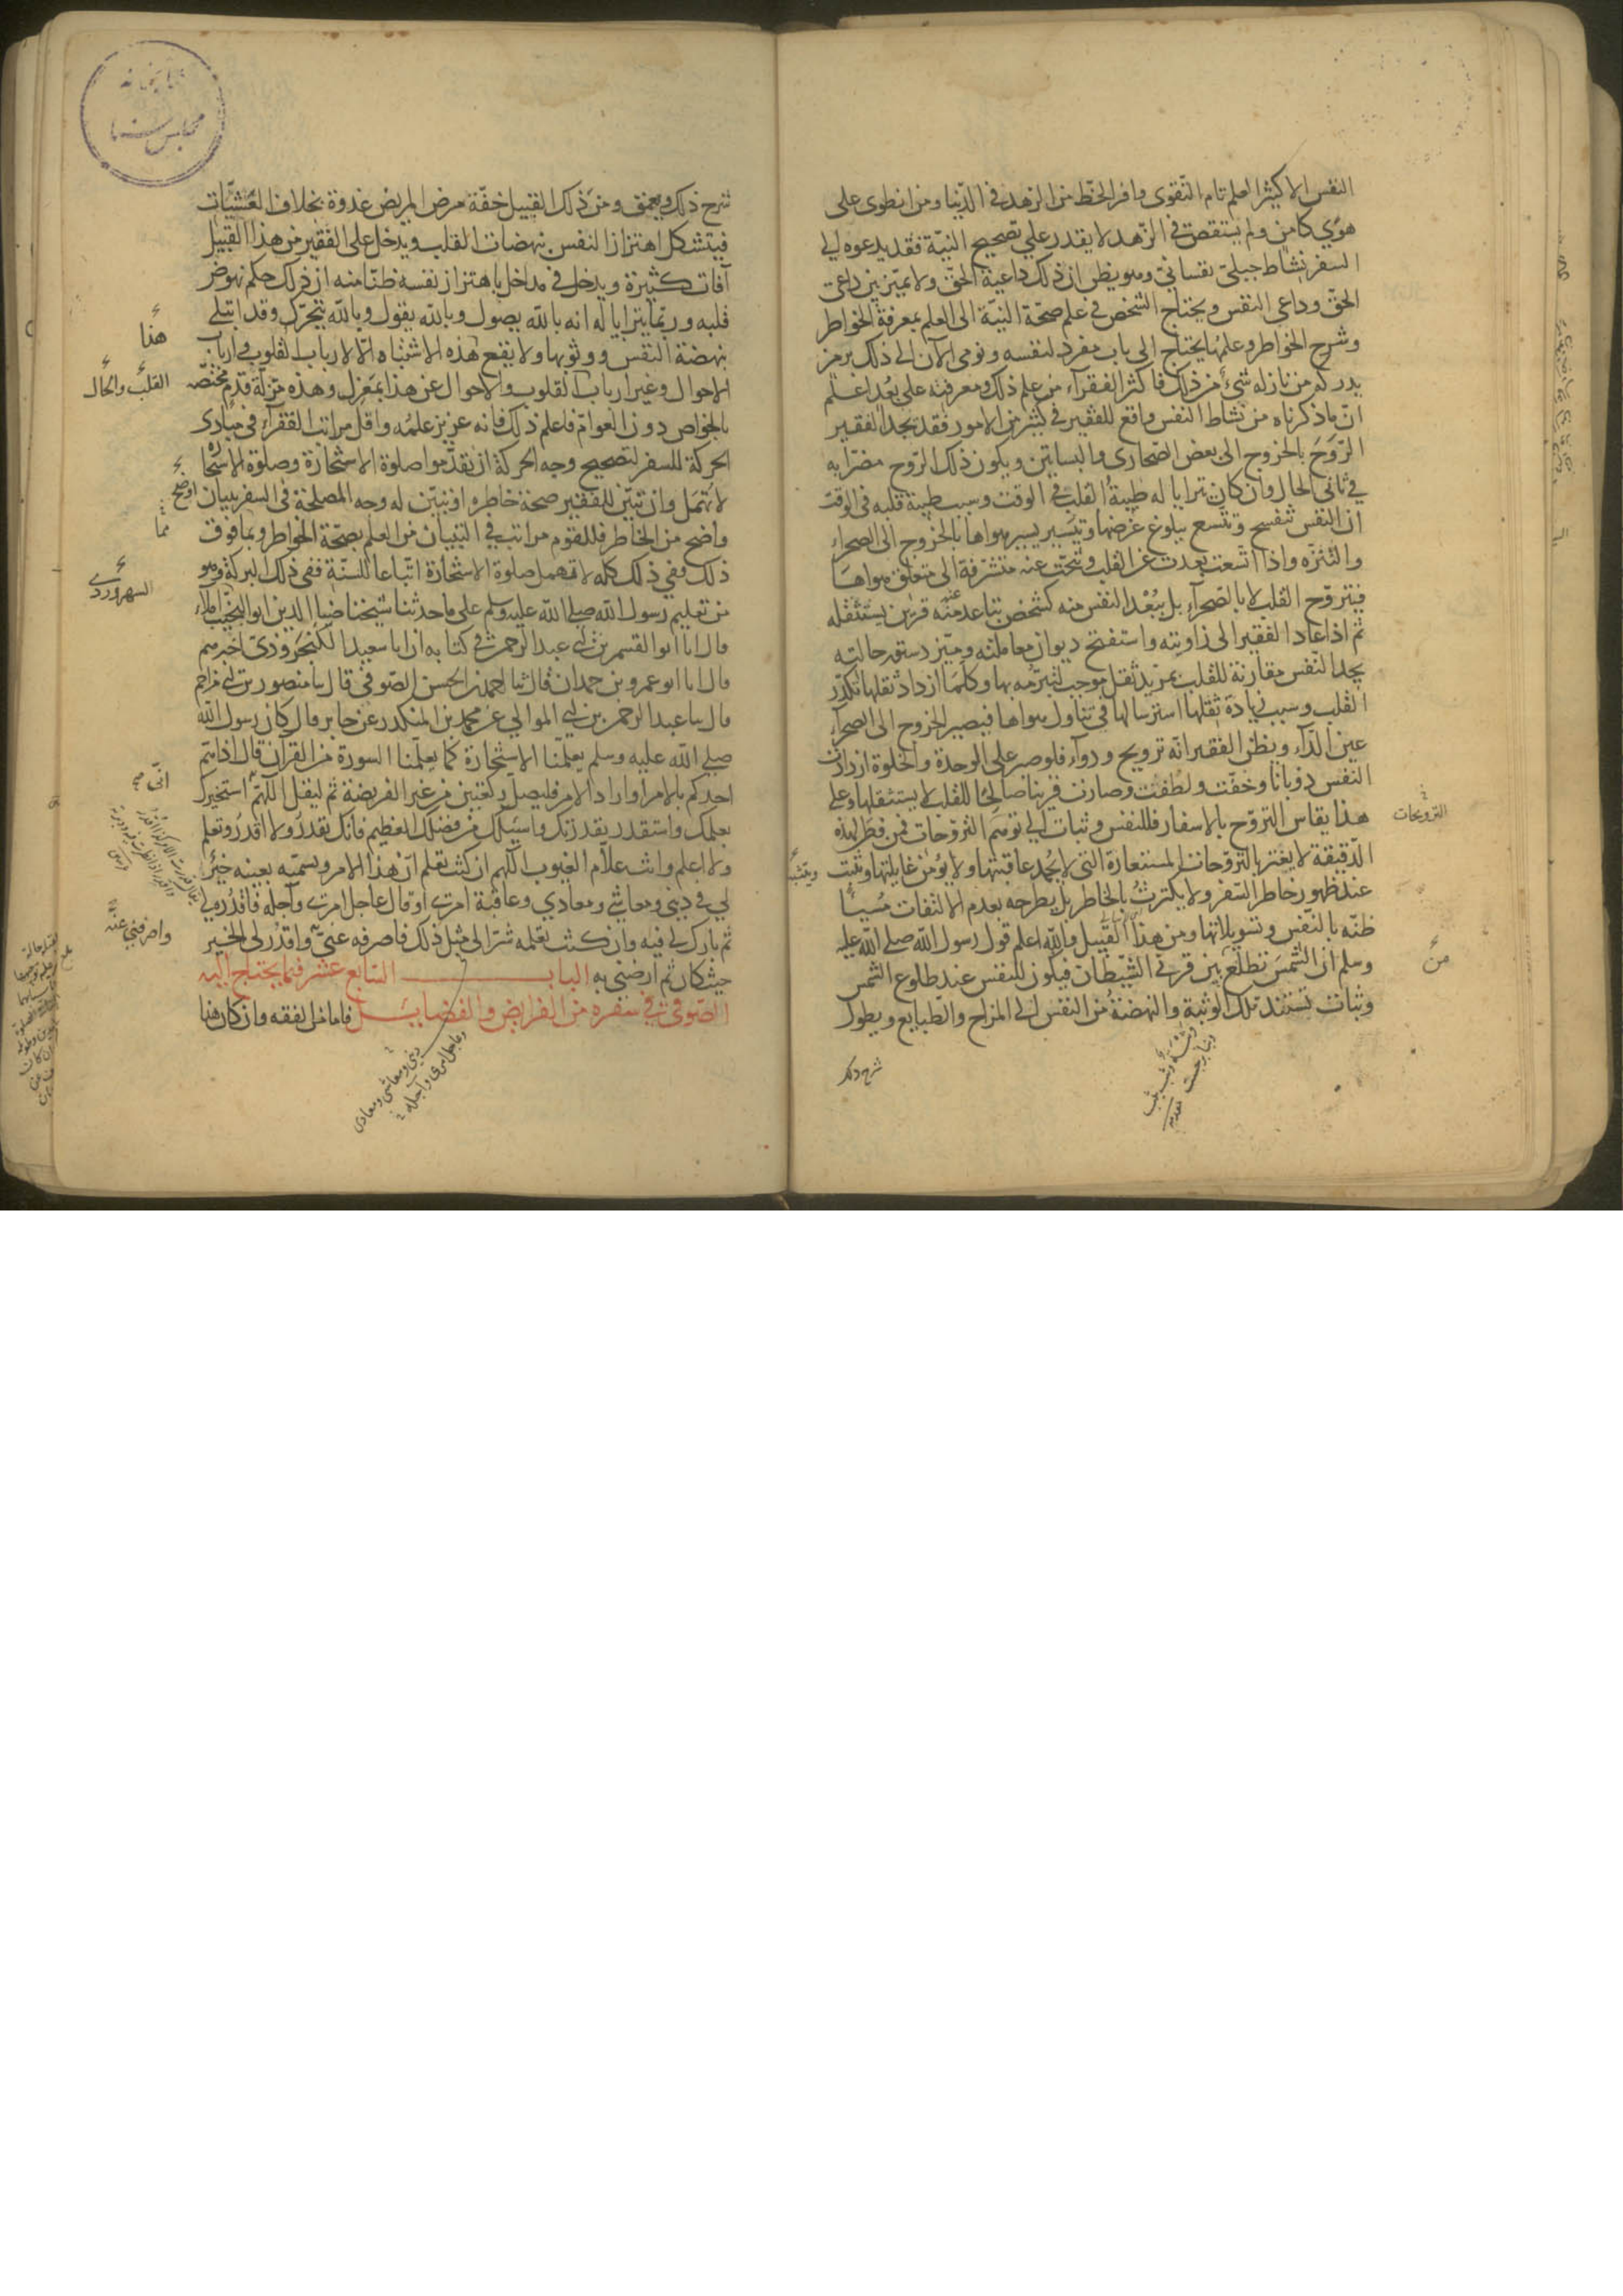 النفس الا كثير العلم تام التقوى وافر الحظ من الزهد في الدنيا ومن انطوى على
هوى كامن ولم يستقص في الزهد لا يقدر على تصحيح النية فقد يدعوه الى
السفر نشاط جبلي نفساني وهو يظن ان ذلك داعية الحق ولا يميز بين داعى
الحق وداعى النفس ويحتاج الشخص في علم صحة النية الى العلم بمعرفة الخواطر
وشرح الخواطر وعلمها يحتاج الى باب مفرد لنفسه ونومى الآن الى ذلك برمز
يدركه من نازله شئ من ذلك فاكثر الفقراء من علم ذلك ومعرفته على بعد اعلم
ان ما ذكرناه من نشاط النفس واقع للفقير في كثير من الامور فقد يجد الفقير
الروح بالخروج الى بعض الصحارى والبساتين ويكون ذلك الروح مضرا به
في ثانى الحال وان كان يترايا له طيبة القلب في الوقت وسبب طيبة قلبه في الوقت
ان النفس تنفسح وتتسع ببلوغ غرضها وتيسير يسير هواها بالخروج الى الصحراء
والتنزه واذا اتسعت بعدت عن القلب وتنحت عنه متشرفة الى متعلق هواها
فيتروح القلب لا بالصحراء بل ببعد النفس منه كشخص تباعد عنه قرين يستثقله
ثم اذا عاد الفقير الى زاويته واستفتح ديوان معاملته وميز دستور حالته
يجد النفس مقارنة للقلب بمزيد ثقل موجب لتبرمه بها وكلما ازداد ثقلها تكدر
القلب وسبب زيادة ثقلها استرسالها في تناول هواها فيصير الخروج الى الصحراء
عين الداء ويظن الفقير انه ترويح ودواء فلو صبر على الوحدة والخلوة ازدادت
النفس ذوبانا وخفت ولطفت وصارت قرينا صالحا للقلب لا يستثقلها وعلى
هذا يقاس التروح بالاسفار فللنفس وثبات الى توهم التروحات فمن فطن لهذه
الترويحات
الدقيقة لا يغتر بالتروحات المستعارة التى لا يحمد عاقبتها ولا يؤمن غايلتها وتثبت
عند ظهور خاطر السفر ولا يكترث بالخاطر بل يطرحه بعدم الالتفات مسيا
ظنه بالنفس وتسويلاتها ومن هذا القبيل والله اعلم قول رسول الله صلى الله عليه
وسلم ان الشمس تطلع بين قرنى الشيطان فيكون للنفس عند طلوع الشمس
من
وثبات تستند تلك الوثبة والنهضة من النفس الى المزاج والطبايع ويطول
شرح ذلك
شرح ذلك ويعمق ومن ذلك القبيل خفة مرض المريض غدوة بخلاف العشيات
فيتشكل اهتزاز النفس بنهضات القلب ويدخل على الفقير من هذا القبيل
آفات كثيرة ويدخل في مداخل باهتزاز نفسه ظنا منه ان ذلك حكم نهوض
قلبه وربما يترايا له انه بالله يصول وبالله يقول وبالله يتحرك وقد ابتلى
هذا
بنهضة النفس ووثوبها ولا يقع هذه الاشتباه الا لارباب القلوب وارباب
الاحوال وغير ارباب القلوب والاحوال عن هذا بمعزل وهذه مزلة قدم مختصه
القلب والحال
بالخواص دون العوام فاعلم ذلك فانه عزيز علمه واقل مراتب الفقراء في مبادى
الحركة للسفر لتصحيح وجه الحركة ان يقدموا صلوة الاستخارة وصلوة الاستخارة
لا تهمل وان تبين للفقير صحة خاطره او تبين له وجه المصلحة في السفر ببيان اوضح
واضح من الخاطر فللقوم مراتب في التبيان من العلم بصحة الخواطر وبما فوق
ذلك ففي ذلك كله لا تهمل صلوة الاستخارة اتباعا للسنة ففى ذلك البركة وهو
السهروردي
من تعليم رسول الله صلى الله عليه وسلم على ما حدثنا شيخنا ضيا الدين ابو النجيب املاء
قال انا ابو القسم بن عبد الرحمن في كتابه ان ابا سعيد الكنجروذى اخبرهم
قال انا ابو عمرو بن حمدان قال ثنا احمد بن الحسن الصوفي قال ثنا منصور بن ابى مزاحم
قال ثنا عبد الرحمن بن ابى الموالى عن محمد بن المنكدر عن جابر قال كان رسول الله
صلى الله عليه وسلم يعلمنا الاستخارة كما يعلمنا السورة من القرآن قال اذا هم
انى
احدكم بالامر او اراد الامر فليصل ركعتين من غير الفريضة ثم ليقل اللهم استخيرك
بعلمك واستقدرك بقدرتك واسئلك من فضلك العظيم فانك تقدر ولا اقدر وتعلم
ولا اعلم وانت علام الغيوب اللهم ان كنت تعلم ان هذا الامر ويسميه بعينه خيرا
لى في دينى ومعاشى ومعادي وعاقبة امرى او قال عاجل امرى وآجله فاقدره لى
واصرفنى عنه
ثم بارك لى فيه وان كنت تعلمه شرا لى مثل ذلك فاصرفه عنى واقدر لى الخير
حيث كان ثم ارضنى به الباب السابع عشر فيما يحتاج اليه
الصوفى في سفره من الفرايض والفضايل فاما من الفقه وان كان هذا
دينى ومعاشى ومعادى
وعاجل امرى وآجله